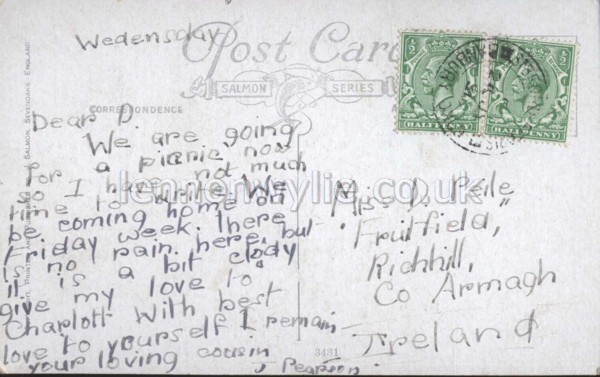 Wedensday
Post Card
SALMON SERIES
CORRESPONDENCE
Dear D.
We are going
for a picnic now
so I have not much
time to write We
be coming home on
Friday week. There
is no rain here, but
it is a bit clody
give my love to
Charlott with best
love to yourself I remain
your loving cousin
J Pearson
Miss D. Peile
"Fruitfield,"
Richhill,
Co Armagh
Ireland
HALFPENNY
HALFPENNY
3431
SALMON, SEVENOAKS, ENGLAND
lennonwylie.co.uk